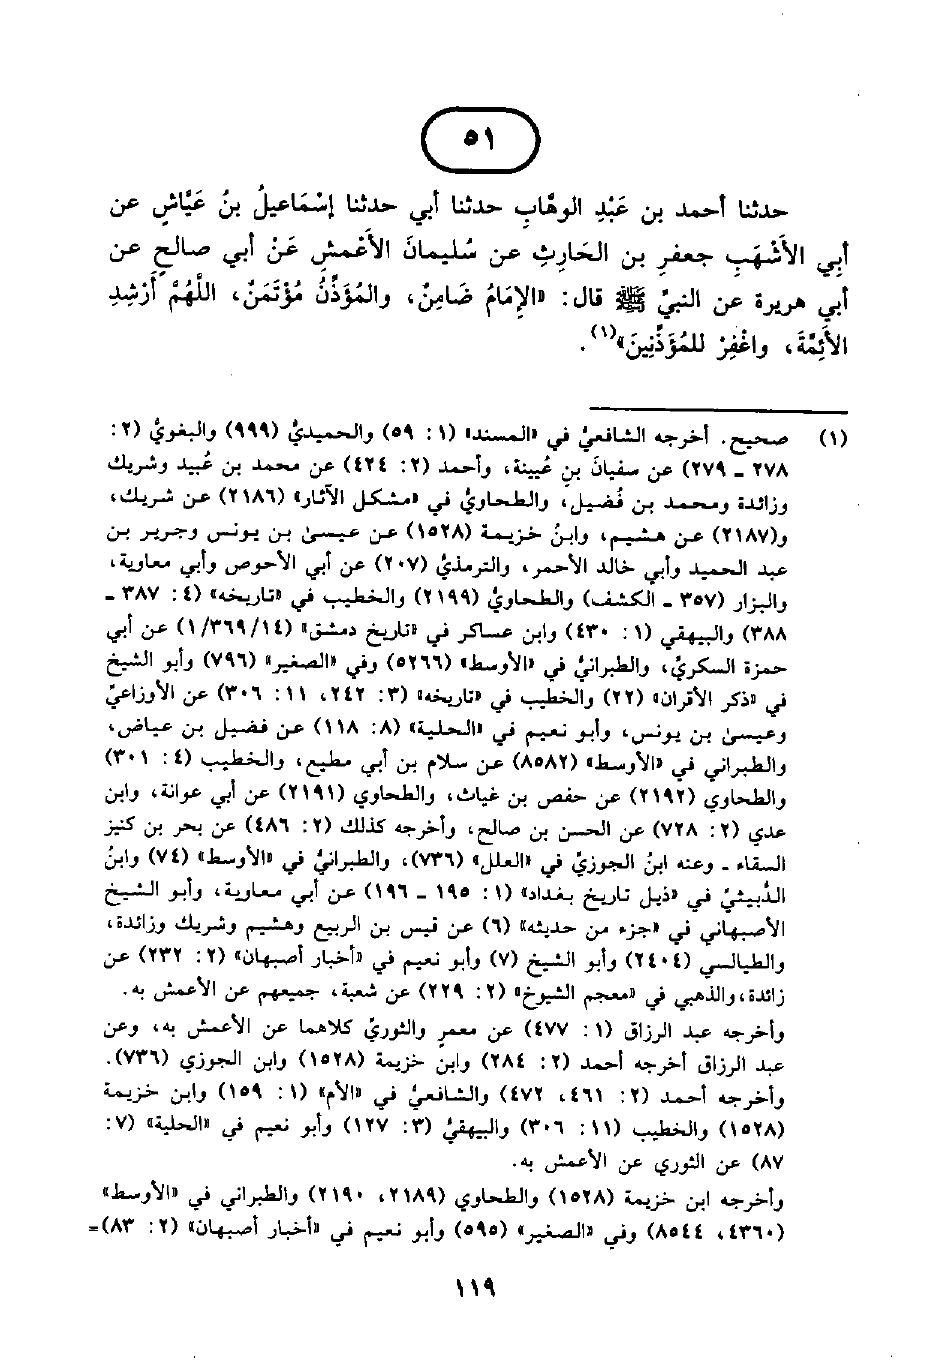 ٥١
حدثنا أحمد بن عَبْدِ الوهَّابِ حدثنا أبي حدثنا إسْمَاعيلُ بنُ عَيَّاشٍ عن
أبِي الأَشْهَبِ جعفرِ بن الحَارِثِ عن سُليمانَ الأعْمشِ عَنْ أبي صالحٍ عن
أبي هريرة عن النبيِّ ﷺ قال: «الإِمَامُ ضَامِنٌ، والمُؤَذِّنُ مُؤْتَمَنٌ، اللَّهُمَّ أَرْشِدِ
الأَئِمَّةَ، واغْفِرْ للمُؤَذِّنِينَ»(١).
(١) صحيح. أخرجه الشافعيُّ في «المسند» (١: ٥٩) والحميديُّ (٩٩٩) والبغويُّ (٢:
٢٧٨ ـ ٢٧٩) عن سفيانَ بنِ عُيينة، وأحمد (٢: ٤٢٤) عن محمد بن عُبيد وشريك
وزائدة ومحمد بن فُضيل، والطحاويُّ في «مشكل الآثار» (٢١٨٦) عن شريك،
و(٢١٨٧) عن هشيم، وابنُ خزيمة (١٥٢٨) عن عيسىٰ بن يونس وجرير بن
عبد الحميد وأبي خالد الأحمر، والترمذيُّ (٢٠٧) عن أبي الأحوص وأبي معاوية،
والبزار (٣٥٧ ـ الكشف) والطحاويُّ (٢١٩٩) والخطيب في «تاريخه» (٤: ٣٨٧ ـ
٣٨٨) والبيهقي (١: ٤٣٠) وابن عساكر في «تاريخ دمشق» (١/٣٦٩/١٤) عن أبي
حمزة السكريِّ، والطبرانيُّ في «الأوسط» (٥٢٦٦) وفي «الصغير» (٧٩٦) وأبو الشيخ
في «ذكر الأقران» (٢٢) والخطيب في «تاريخه» (٣: ٢٤٢، ١١: ٣٠٦) عن الأوزاعيِّ
وعيسىٰ بن يونس، وأبو نعيم في «الحلية» (٨: ١١٨) عن فضيل بن عياض،
والطبراني في «الأوسط» (٨٥٨٢) عن سلام بن أبي مطيع، والخطيب (٤: ٣٠١)
والطحاوي (٢١٩٢) عن حفص بن غياث، والطحاوي (٢١٩١) عن أبي عوانة، وابن
عدي (٢: ٧٢٨) عن الحسن بن صالح، وأخرجه كذلك (٢: ٤٨٦) عن بحر بن كنيز
السقاء ـ وعنه ابنُ الجوزيِّ في «العلل» (٧٣٦)، والطبرانيُّ في «الأوسط» (٧٤) وابنُ
الدُّبيثيِّ في «ذيل تاريخ بغداد» (١: ١٩٥ ـ ١٩٦) عن أبي معاوية، وأبو الشيخ
الأصبهاني في «جزء من حديثه» (٦) عن قيس بن الربيع وهشيم وشريك وزائدة،
والطيالسي (٢٤٠٤) وأبو الشيخ (٧) وأبو نعيم في «أخبار أصبهان» (٢: ٢٣٢) عن
زائدة، والذهبي في «معجم الشيوخ» (٢: ٢٢٩) عن شعبة، جميعهم عن الأعمش به.
وأخرجه عبد الرزاق (١: ٤٧٧) عن معمرٍ والثوريِّ كلاهما عن الأعمش به، وعن
عبد الرزاق أخرجه أحمد (٢: ٢٨٤) وابن خزيمة (١٥٢٨) وابن الجوزي (٧٣٦).
وأخرجه أحمد (٢: ٤٦١، ٤٧٢) والشافعيُّ في «الأم» (١: ١٥٩) وابن خزيمة
(١٥٢٨) والخطيب (١١: ٣٠٦) والبيهقيُّ (٣: ١٢٧) وأبو نعيم في «الحلية» (٧:
٨٧) عن الثوري عن الأعمش به.
وأخرجه ابن خزيمة (١٥٢٨) والطحاوي (٢١٨٩، ٢١٩٠) والطبراني في «الأوسط»
(٤٣٦٠، ٨٥٤٤) وفي «الصغير» (٥٩٥) وأبو نعيم في «أخبار أصبهان» (٢: ٨٣)=
١١٩